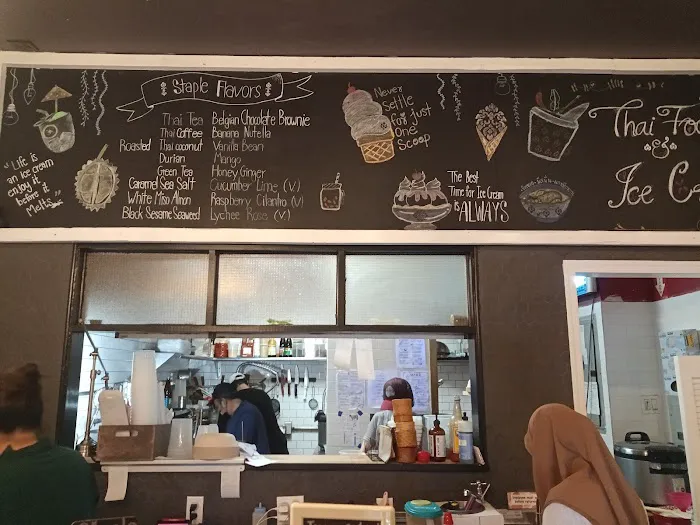 Staple Flavors
Thai Tea
Thai Coffee
Roasted Thai coconut
Durian
Green Tea
Caramel Sea Salt
White Miso Almon
Black Sesame Seaweed
Belgian Chocolate Brownie
Banana Nutella
Vanilla Bean
Mango
Honey Ginger
Cucumber Lime (V)
Raspberry Cilantro (V)
Lychee Rose (V)
"Life is
an ice cream
enjoy it
before it
Melts"
Never
Settle
for just
One
Scoop
The Best
Time for Ice Cream
is ALWAYS
Thai Foo
&
Ice C